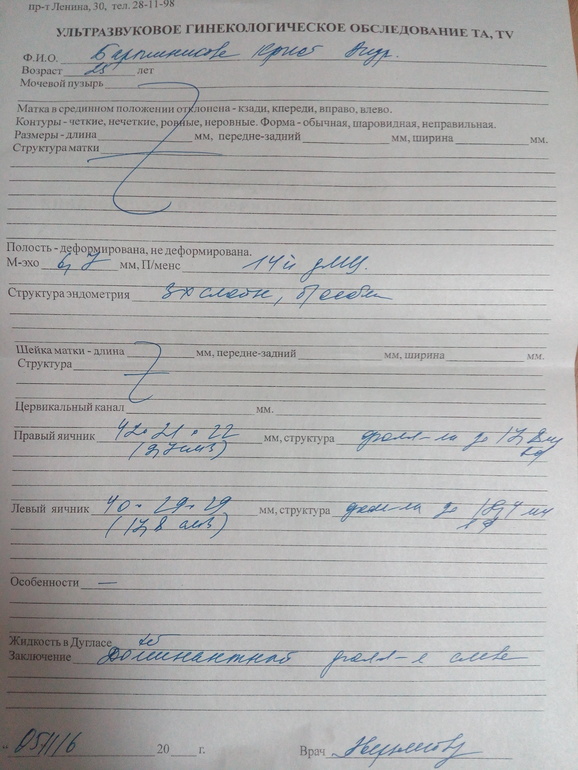 пр-т Ленина, 30, тел. 28-11-98
УЛЬТРАЗВУКОВОЕ ГИНЕКОЛОГИЧЕСКОЕ ОБСЛЕДОВАНИЕ ТА, TV
Ф.И.О.
Возраст 25 лет
Мочевой пузырь
Матка в срединном положении отклонена - кзади, кпереди, вправо, влево.
Контуры - четкие, нечеткие, ровные, неровные. Форма - обычная, шаровидная, неправильная.
Размеры - длина мм, передне-задний мм, ширина мм.
Структура матки
Полость - деформирована, не деформирована.
М-эхо 6,7 мм, П/менс 14й дмц.
Структура эндометрия 3х слойн,
Шейка матки - длина мм, передне-задний мм, ширина мм.
Структура
Цервикальный канал мм.
Правый яичник 42 × 21 × 22 мм, структура фолл-лы до
Левый яичник 40 × 29 × 29 мм, структура фолл-лы до
Особенности —
Жидкость в Дугласе
Заключение Доминантной фолл-л слева
« 05/1/16 20 г. Врач